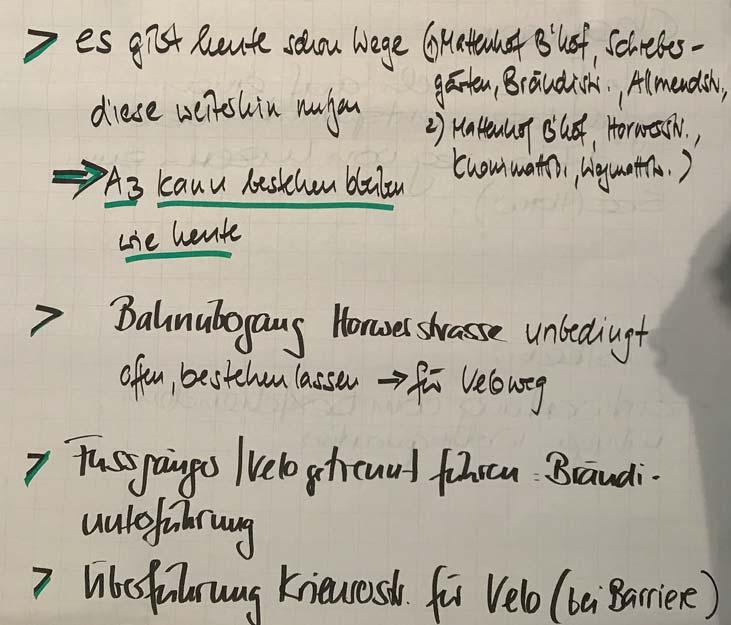 > es gibt heute schon Wege (1) Mattenhof B'hof, Schreber-
gärten, Brändistr., Allmendstr.,
diese weiterhin nutzen
2) Mattenhof B'hof, Horwerstr.,
Knonmattstr., Wegmattstr.)
⇒ A3 kann bestehen bleiben
wie heute
> Bahnübergang Horwerstrasse unbedingt
offen, bestehen lassen → für Veloweg
> Fussgänger / Velo getrennt führen : Brändi-
unterführung
> Überführung Krienserstr. für Velo (bei Barriere)